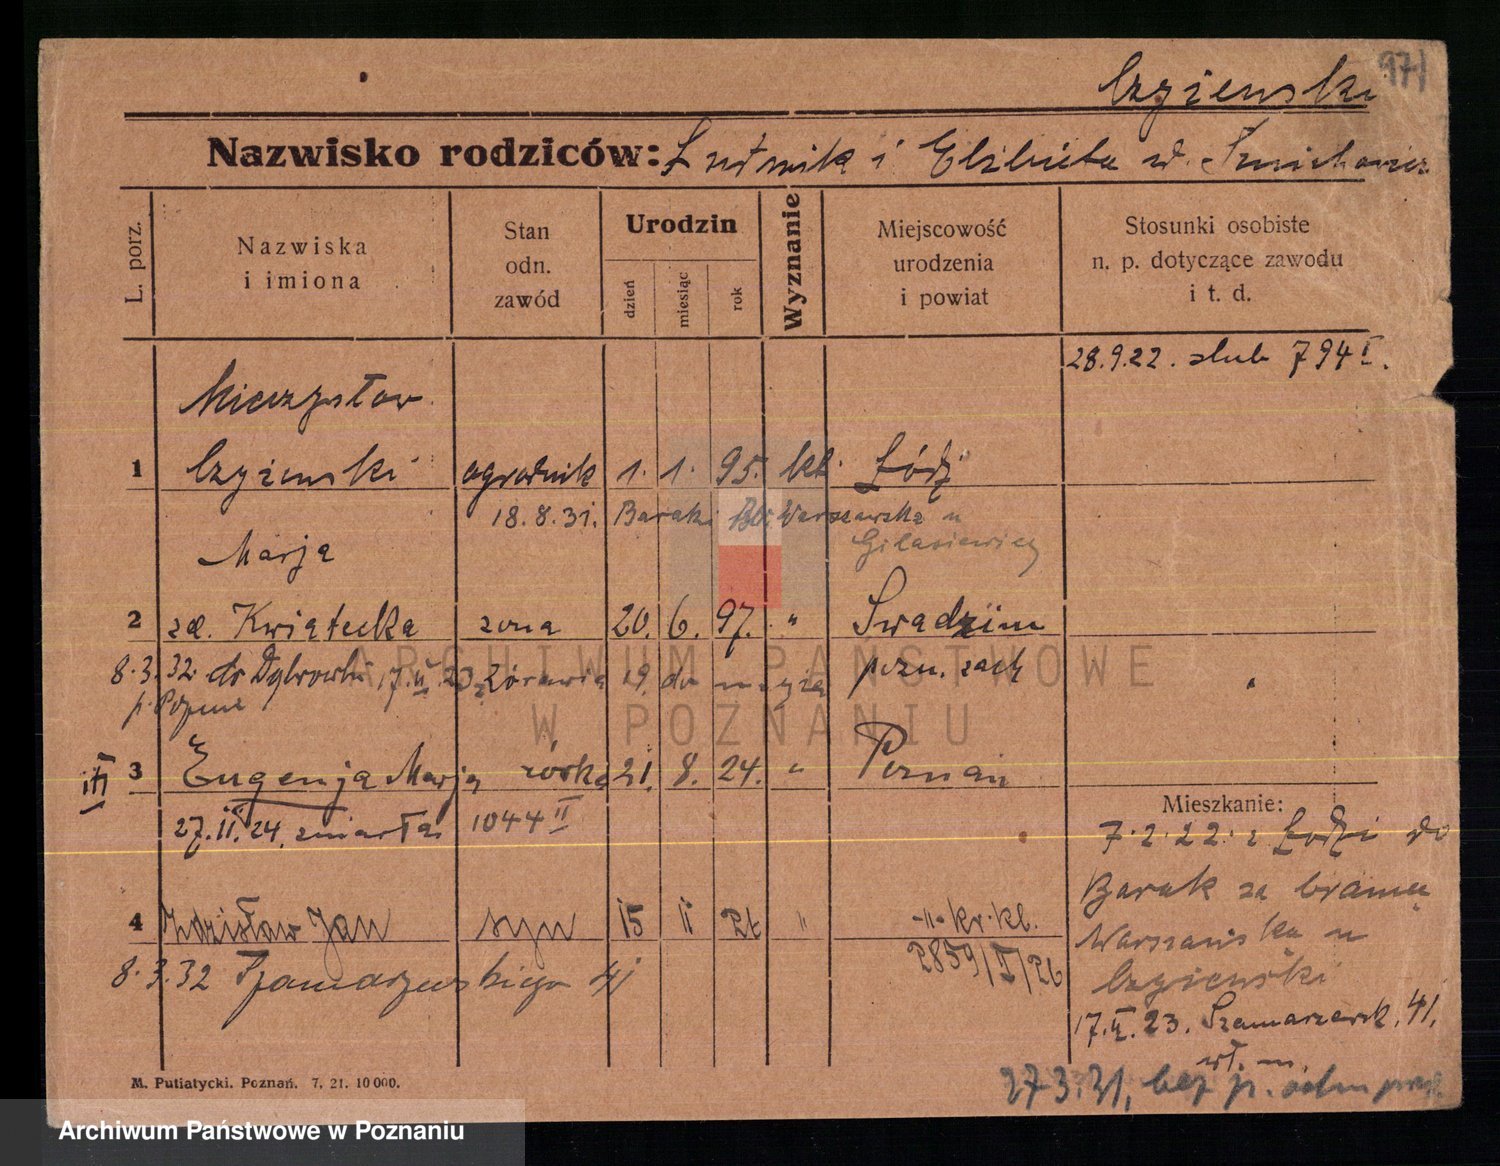 971
Czyżewski
Nazwisko rodziców: Ludwik i Elżbieta
L. porz.
Nazwiska i imiona
Stan odn. zawód
Urodzin
dzień
miesiąc
rok
Wyznanie
Miejscowość urodzenia i powiat
Stosunki osobiste n. p. dotyczące zawodu i t. d.
28.9.22. slub 794 I.
Mieczysław
1 Czyżewski ogrodnik 1. 1. 95. kt. Łódź
18.8.31. Baraki Warszawska u
Marja
2 zd. Kwiatecka żona 20. 6. 97. " Swadzim
8.3.32 do 19. do pozn. zach
III 3 Eugenja Marja córka 21. 8. 24. " Poznań
27.II.24. zmarła 1044 II
Mieszkanie:
7.2.22. z Łodzi do
Barak za bramą
Warszawska u
Czyżewski
17.II.23. Szamarzewsk. 41.
wł. m.
4 Zdzisław Jan syn 15 II 26 " -"- kr. kl.
2859/I/26
8.3.32 Szamarzewskiego 41
27 3. 31, bez p.
M. Putiatycki. Poznań. 7. 21. 10 000.
ARCHIWUM PAŃSTWOWE
W POZNANIU
Archiwum Państwowe w Poznaniu